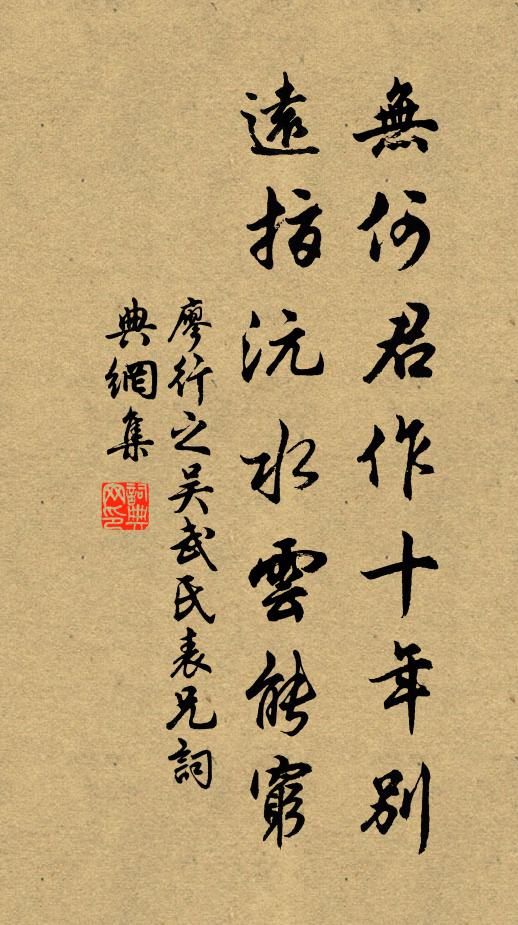 無何君作十年別
遠指沅水雲能窮
廖行之吴武氏表兄詞
典網集
詞典
网印